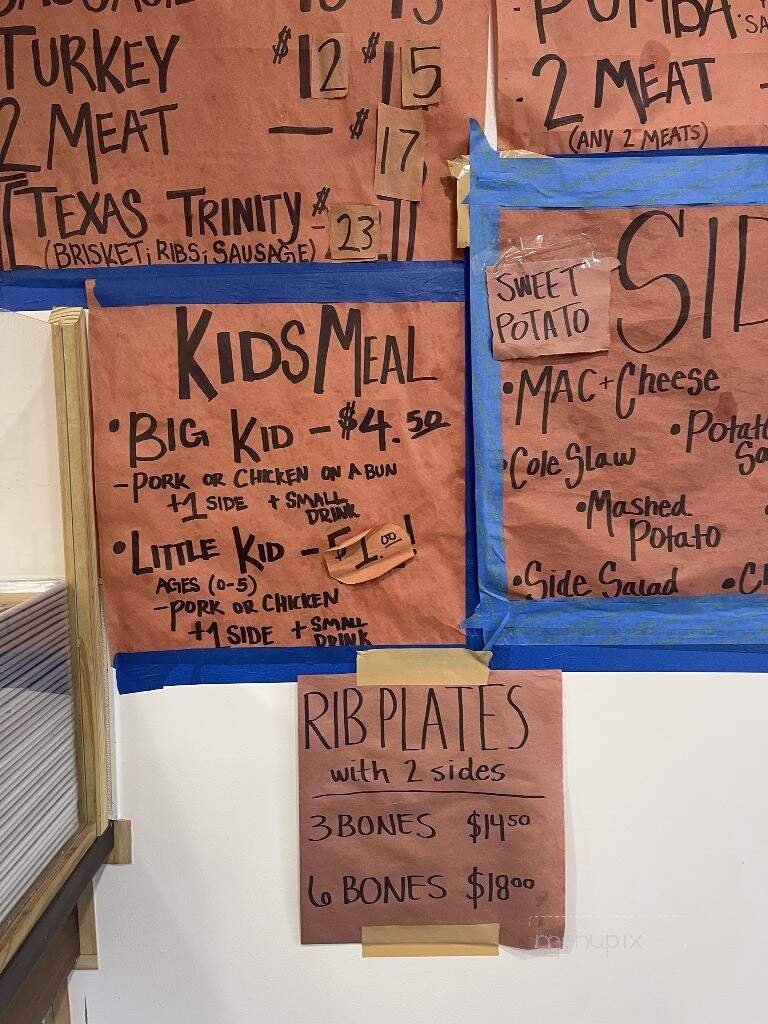 TURKEY $12 $15
2 MEAT — $17
TEXAS TRINITY $23
(BRISKET; RIBS; SAUSAGE)
2 MEAT
(ANY 2 MEATS)
KIDS MEAL
•BIG KID - $4.50
-PORK OR CHICKEN ON A BUN
+1 SIDE + SMALL
DRINK
•LITTLE KID - $1.00!
AGES (0-5)
-PORK OR CHICKEN
+1 SIDE + SMALL
DRINK
SWEET
POTATO
•MAC+Cheese
•Cole Slaw
•Mashed
Potato
•Side Salad
RIB PLATES
with 2 sides
3 BONES $1450
6 BONES $1800
menupix